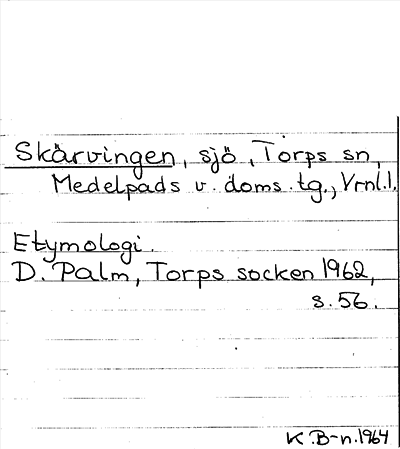 Skärvingen, sjö, Torps sn,
Medelpads v. doms. tg., Vrnl. l.
Etymologi.
D. Palm, Torps socken 1962,
s. 56.
K.B-n. 1964